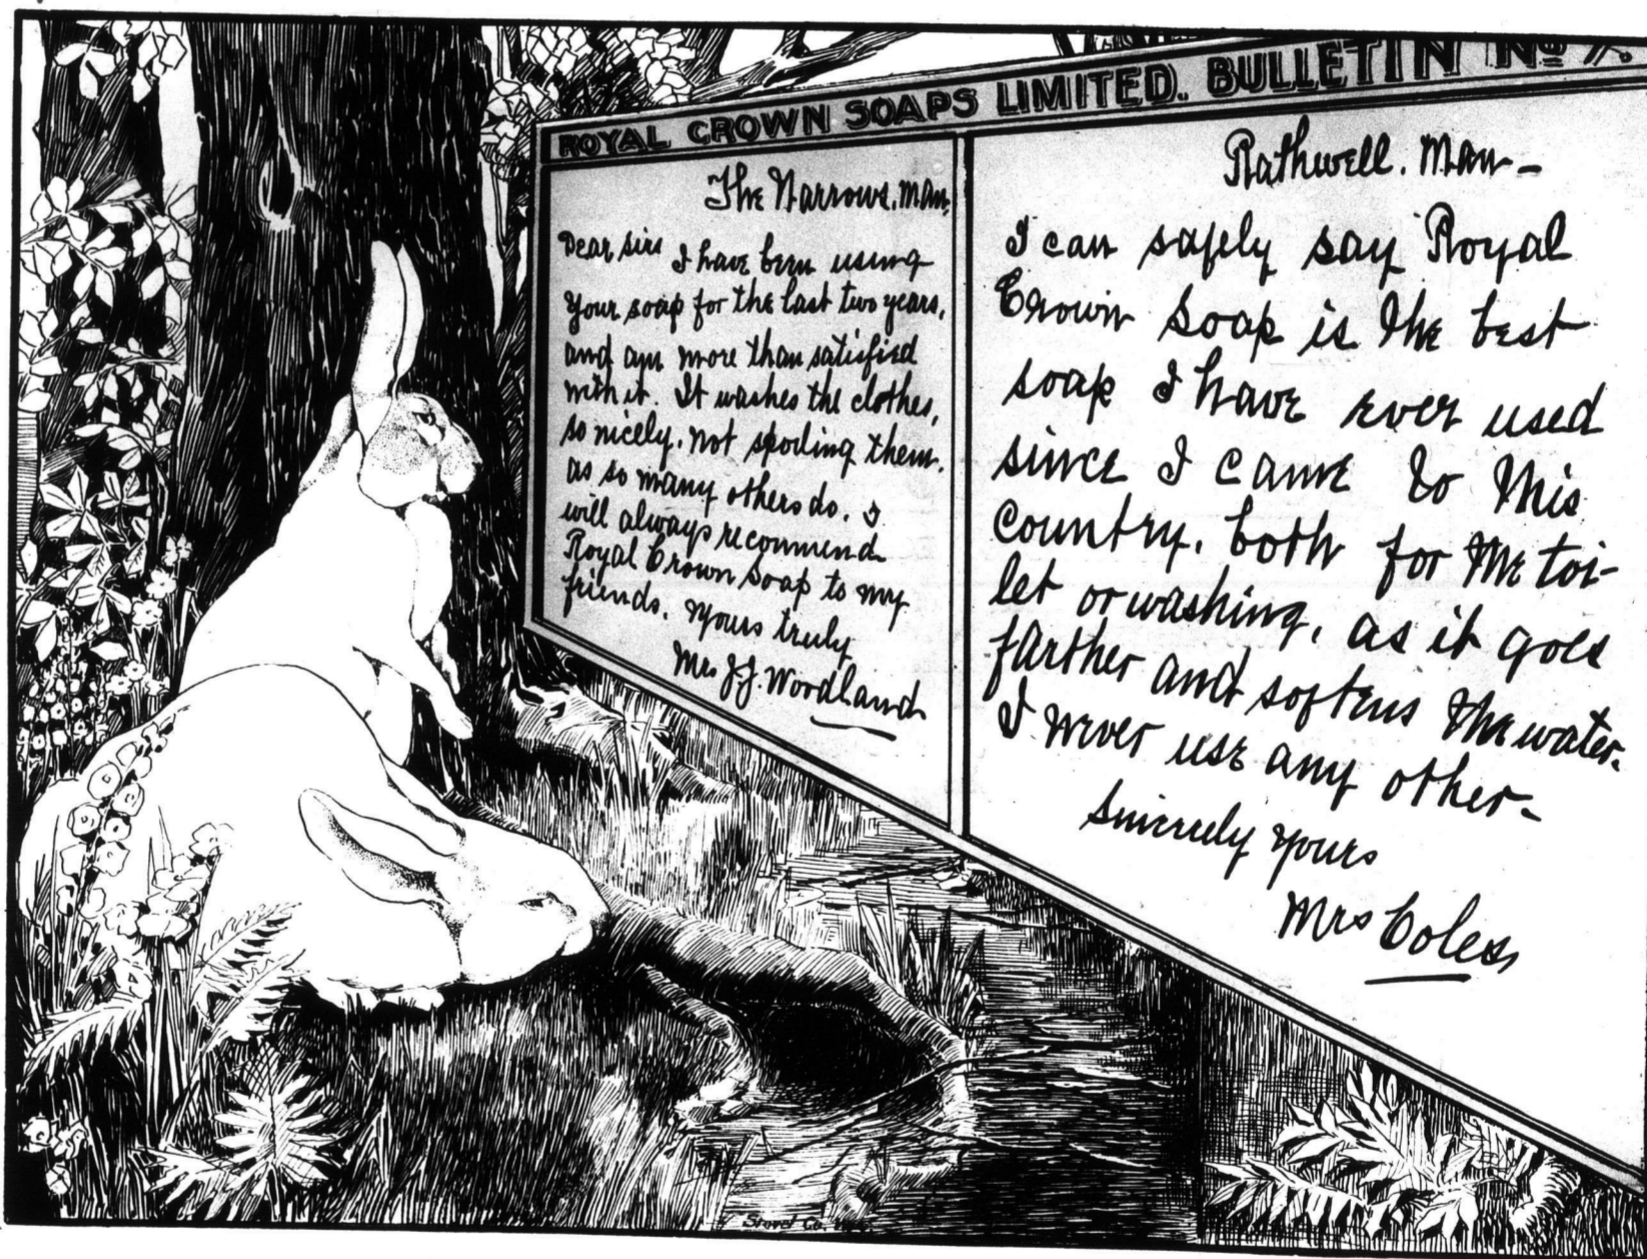 ROYAL CROWN SOAPS LIMITED. BULLETIN No 7.
The Narrows. Man.
Dear Sirs I have been using
your soap for the last two years,
and am more than satisfied
with it. It washes the clothes,
so nicely. not spoiling them.
as so many others do. I
will always recommend
Royal Crown Soap to my
friends. Yours truly
Mrs J.J. Woodland
Rathwell. Man-
I can safely say Royal
Crown Soap is the best
soap I have ever used
since I came to this
country, both for the toi-
let or washing, as it goes
farther and softens the water.
I never use any other-
Sincerely yours
Mrs Coles
Stovel Co.